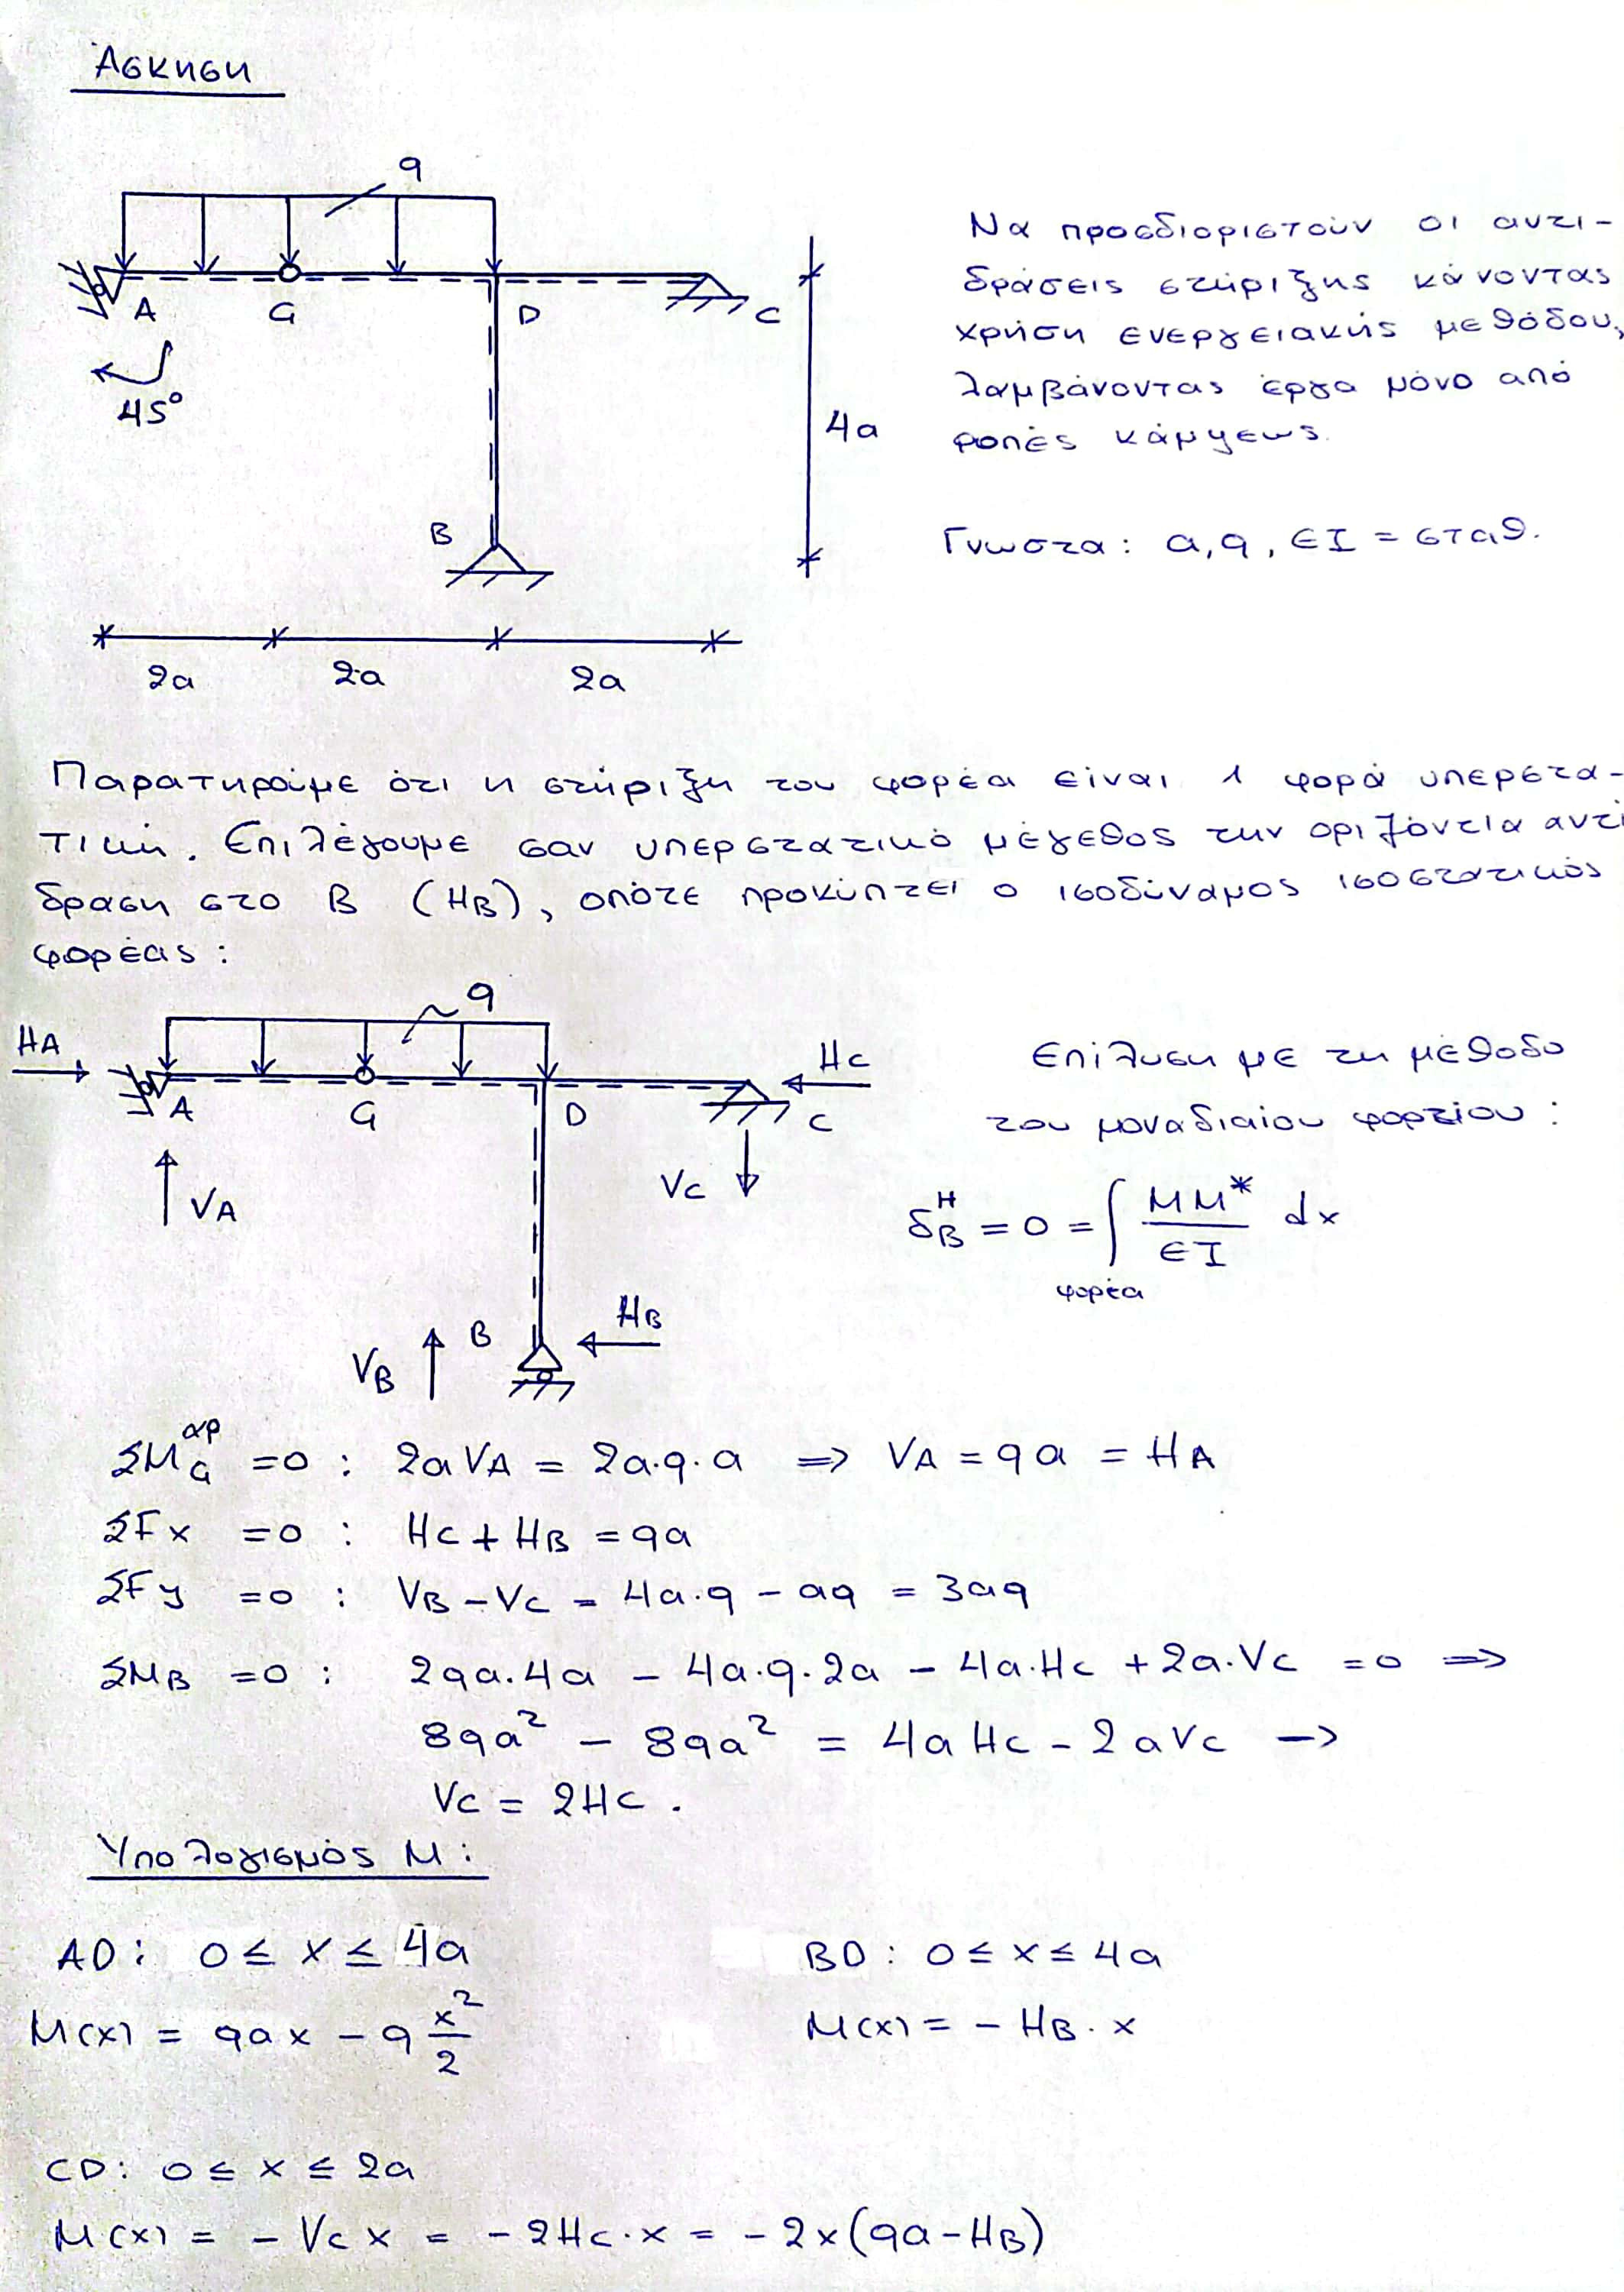 Άσκηση
q
A
G
D
C
45°
4a
B
2a
2a
2a
Να προσδιοριστούν οι αντι-
δράσεις στήριξης κάνοντας
χρήση ενεργειακής μεθόδου,
λαμβάνοντας έργα μόνο από
ροπές κάμψεως.
Γνωστα: a, q, EI = σταθ.
Παρατηρούμε ότι η στήριξη του φορέα είναι 1 φορά υπερστα-
τική. Επιλέγουμε σαν υπερστατικό μέγεθος την οριζόντια αντί
δραση στο B (HB), οπότε προκύπτει ο ισοδύναμος ισοστατικός
φορέας:
q
HA
HC
A
G
D
C
VA
VC
HB
B
VB
Επίλυση με τη μέθοδο
του μοναδιαίου φορτίου:
δ_B^H = 0 = ∫ MM*/EI dx
φορέα
ΣM_G^αρ = 0 : 2aVA = 2a·q·a ⇒ VA = qa = HA
ΣFx = 0 : HC + HB = qa
ΣFy = 0 : VB - VC = 4a·q - aq = 3aq
ΣMB = 0 : 2qa·4a - 4a·q·2a - 4a·HC + 2a·VC = 0 ⇒
8qa² - 8qa² = 4aHC - 2aVC →
VC = 2HC.
Υπολογισμός M:
AD: 0 ≤ x ≤ 4a
BD: 0 ≤ x ≤ 4a
M(x) = qax - q x²/2
M(x) = - HB · x
CD: 0 ≤ x ≤ 2a
M(x) = - VC x = - 2HC · x = - 2x(qa - HB)